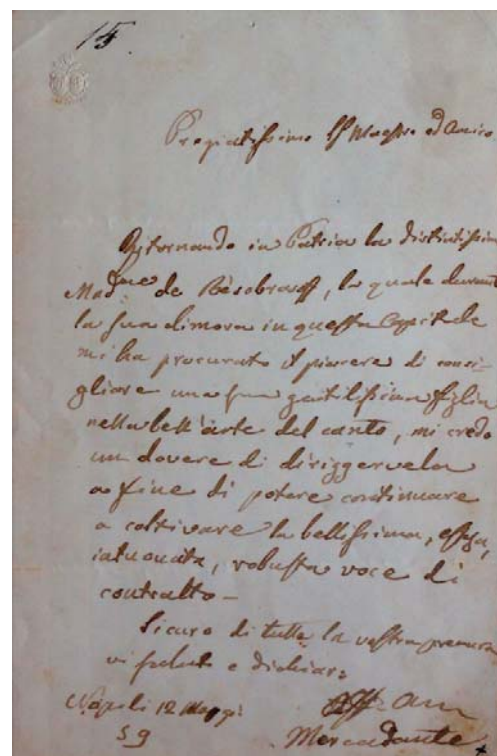 15
Pregiatissimo Sr Maestro ed Amico
Ritornando in Patria la distintissima
Madme de Bèsobrasoff, la quale durante
la sua dimora in questa Capitale
mi ha procurato il piacere di consi-
gliare una sua gentilissima figlia
nella bell'arte del canto, mi credo
un dovere di diriggervela
a fine di potere continuare
a coltivare la bellissima, estesa,
intuonata, robusta voce di
contralto –
Sicuro di tutta la vostra premura
vi saluto e dichiaro
Napoli 12 Maggio
59
Aff Am
Mercadante